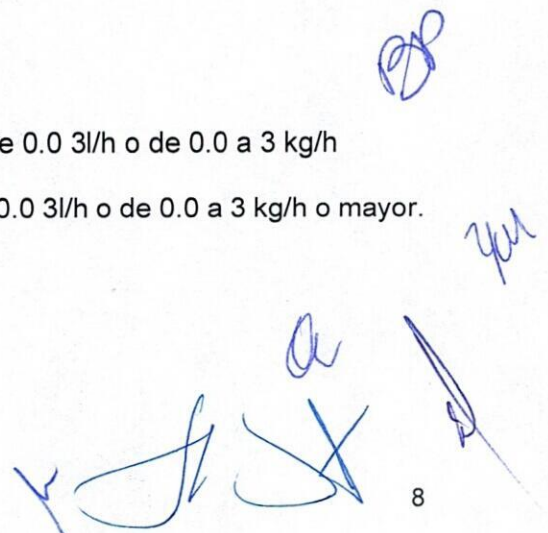 e 0.0 3l/h o de 0.0 a 3 kg/h
0.0 3l/h o de 0.0 a 3 kg/h o mayor.
8